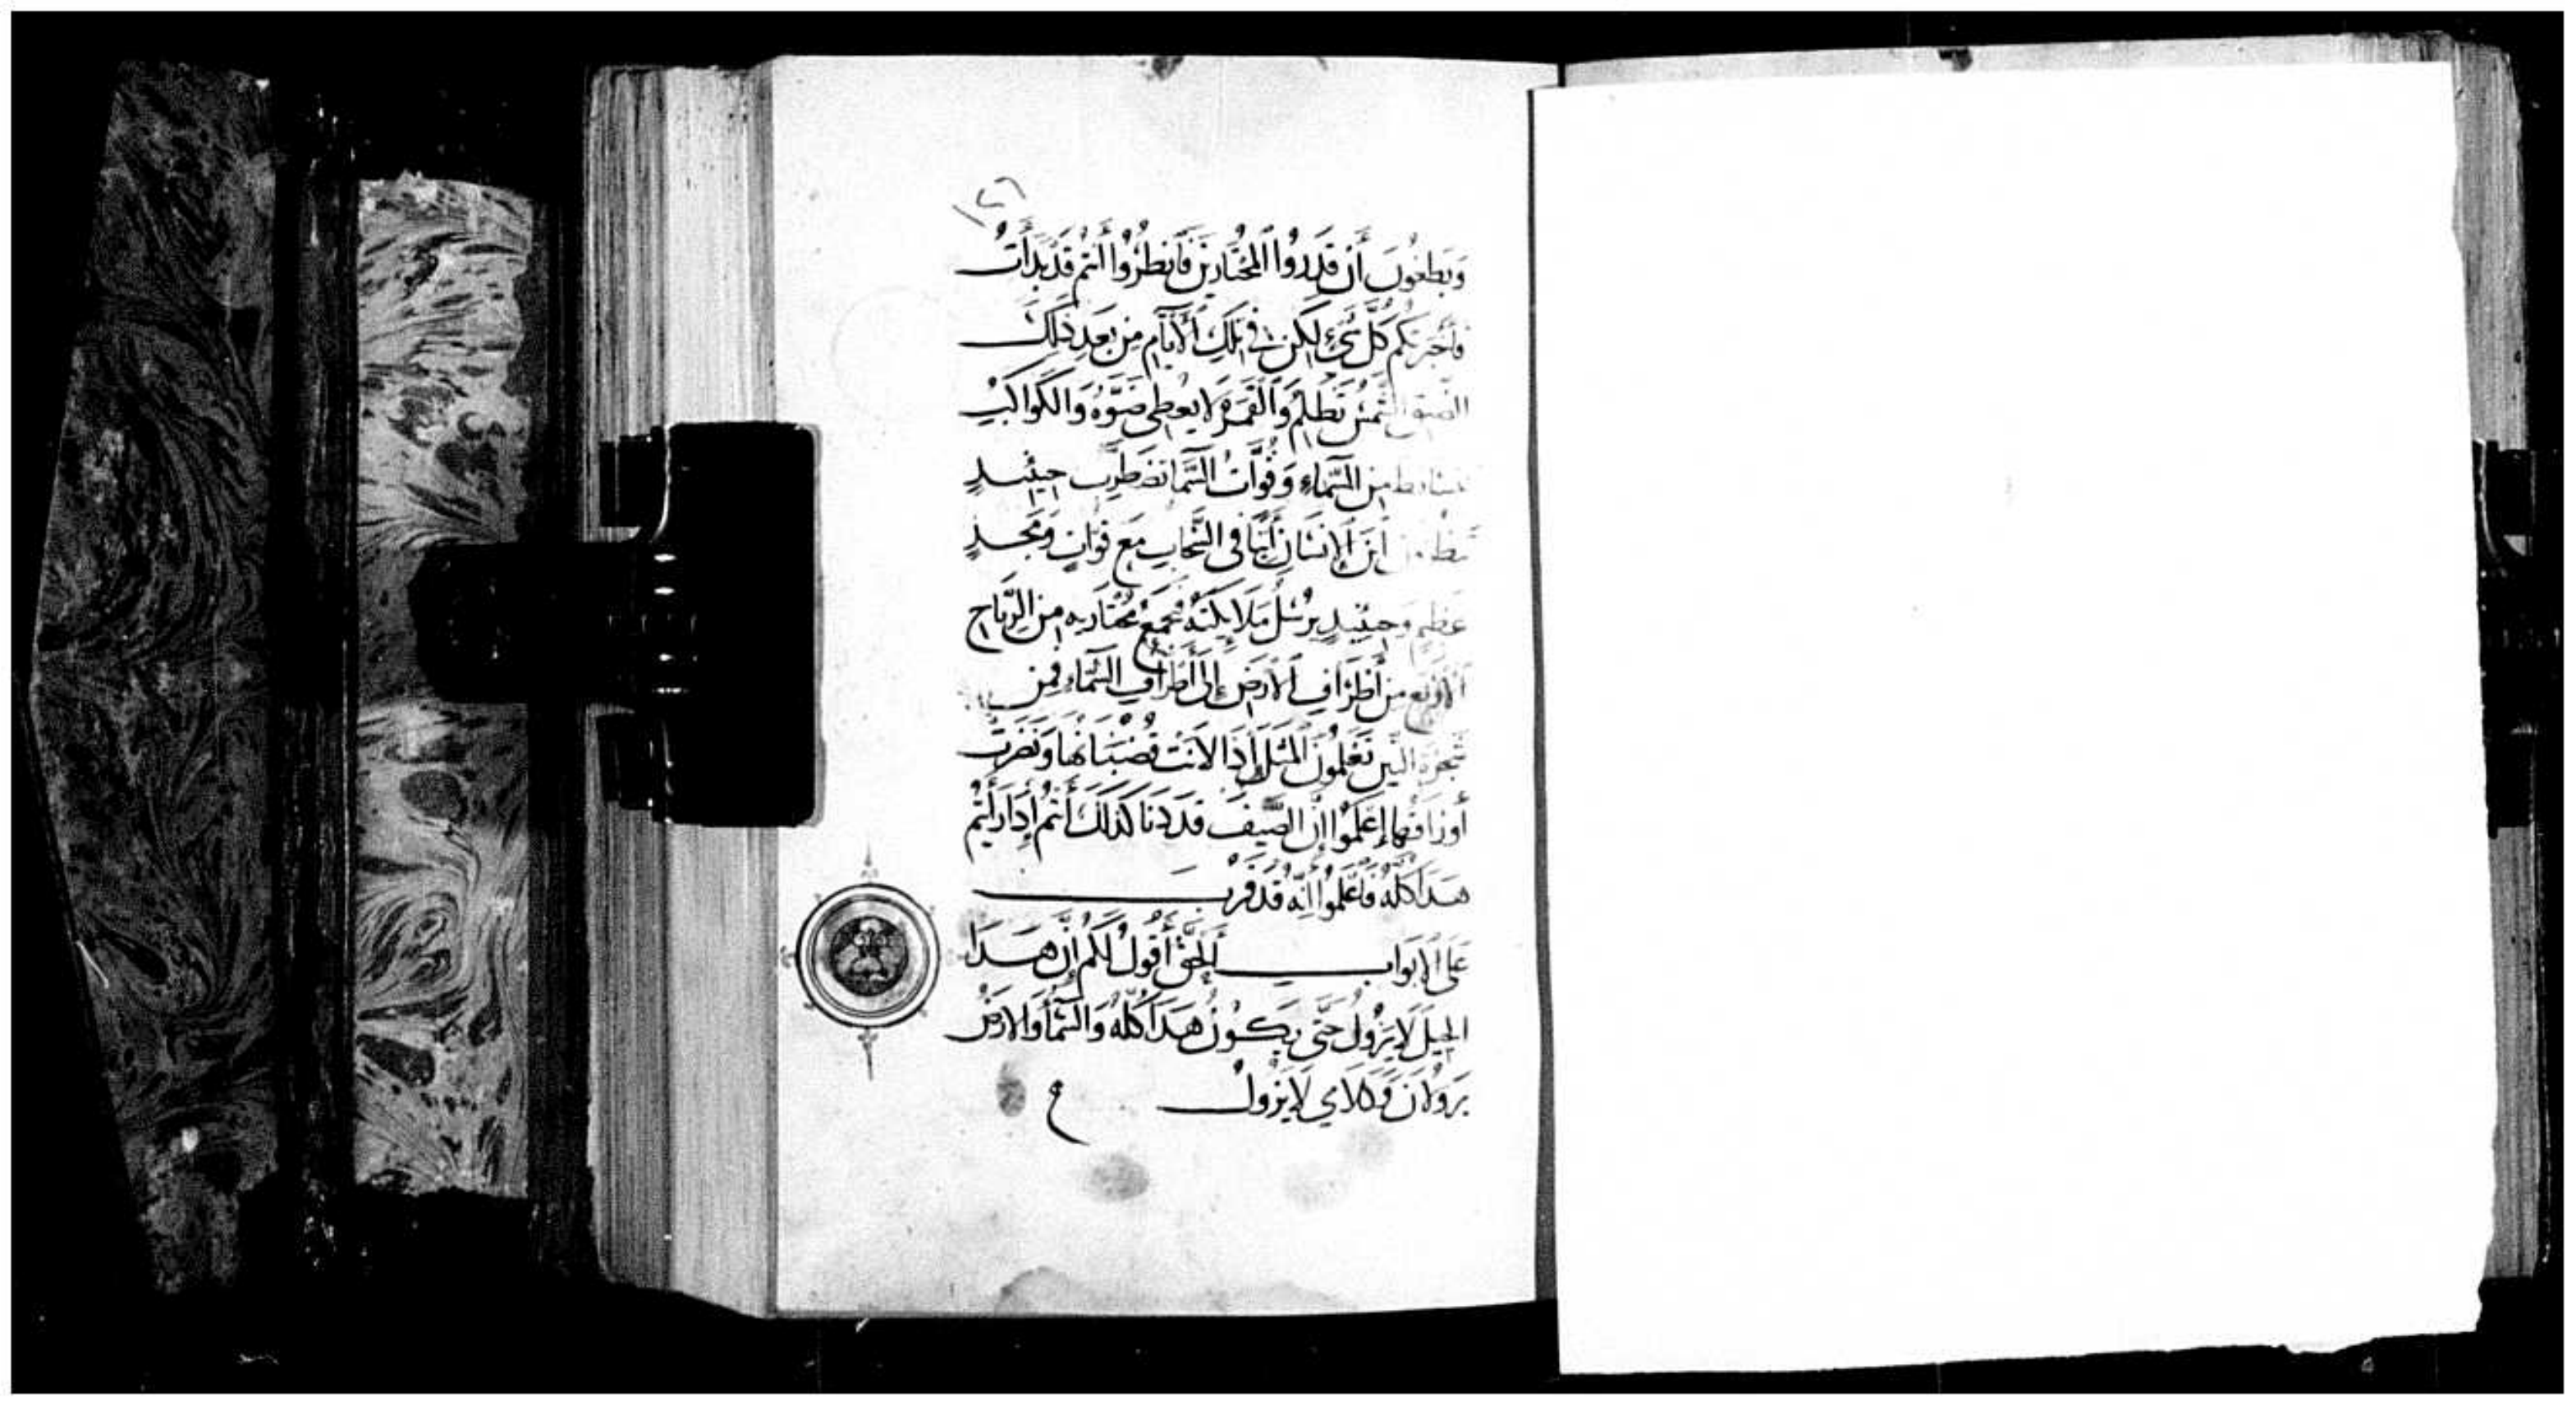 ١٢٦
وَيطغُون أَن قَدروُا المُختَارِينَ فَانظرُوا أنتم قَد بَدَأتُ
فأخبرتكم كلّ شيء لكن في تلك الأيّام من بَعدِ ذلك
الضيق الشمسُ تظلم وَالقمرَ لا يُعطى ضوّه وَالكَواكبُ
تتساقط من السّماءِ وَقوَّاتُ السّما تضطرب حينئذٍ
ابنَ الإنسَانِ آتيًا في السَّحاب مع قوّاتٍ ومَجدٍ
عَظيمٍ وَحينَئِذٍ يرُسلُ مَلَايِكتهُ فيجمع مختاريه من الرّيَاح
الأربَع من أطرَافِ الأرض إلى أطرَافِ السَّماء فمن
شجرَة التّين تَعَلمُون المثَل إذا لانت قُضبَانها وَنضرت
أورَاقها إعَلموُا إنّ الصّيف قد دَنا كذلك أنتم إذا رَأيتم
هَذا كلّهُ فاعلموا إنّه قد قرب
عَلى الابوَاب أَلحق أقول لكم إنّ هَذا
الجيل لا يَزُولُ حتّى يكون هَذا كلّه وَالسّما وَالأرض
يزولان وَكلامي لا يَزُولُ